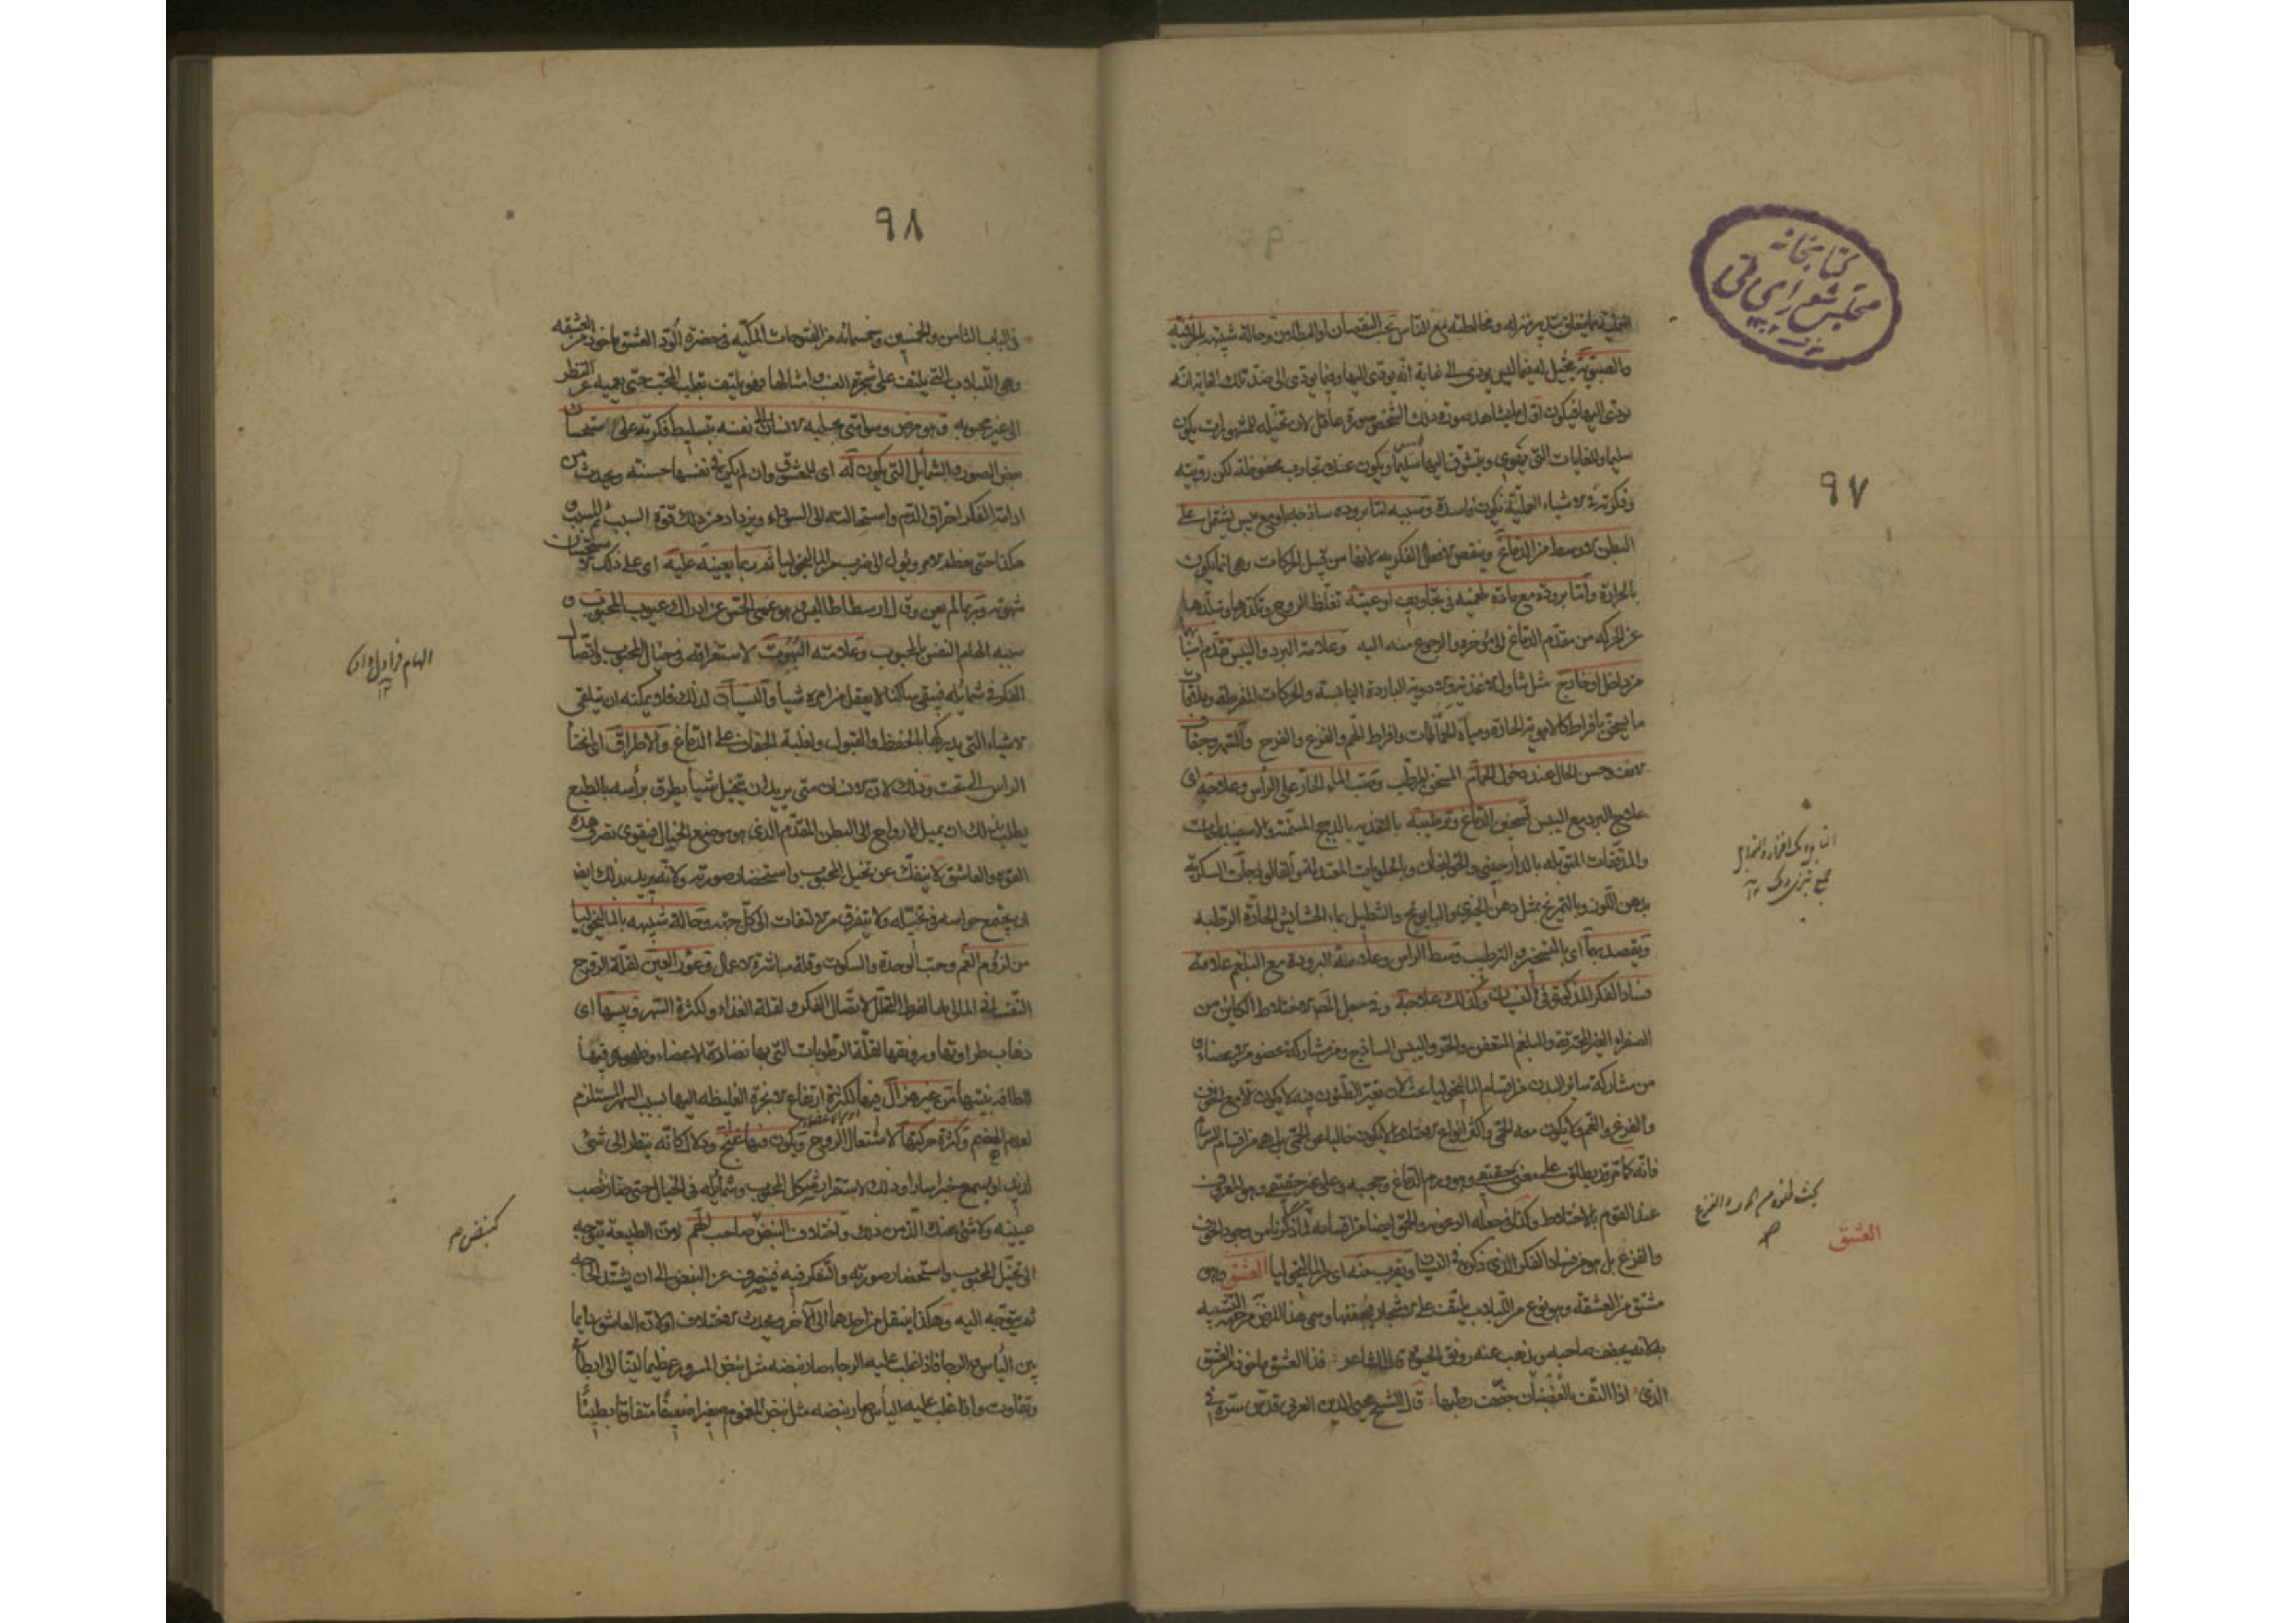 كتابخانه
مجلس شورای ملی
٩٧
العملية مما يتعلق بتدبير منزله ومخالطته مع الناس تحت النقصان او البطلان وحالة شبيهة بالخرفية
والصبوية يتخيل له فيما ليس يودي الى غاية انه يودي اليها وفيما يودي الى ضد تلك الغاية انه
يودي اليها فيكون اول ما يشاهد صورة ذلك الشخص صورة عاقل لان تخيله للمشهورات يكون
سليما وللغايات التي يقوى ويتشوق اليها سليما ويكون عنده تجارب محفوظة لكن رويته
وفكرته في الاشياء العملية يكون فاسدة وسببه اما برودة ساذجة او مع يبس يشتمل على
البطن الاوسط من الدماغ وينقص الافعال الفكرية لانها من قبيل الحركات وهي انما يكون
بالحرارة واما برودة مع مادة بلغمية في تجاويف اوعيته تغلظ الروح وتكدرها وتبلدها
عن الحركة من مقدم الدماغ الى مؤخره والرجوع منه اليه وعلامة البرد واليبس تقدم اسبابها
من داخل او خارج مثل تناول الاغذية والادوية الباردة اليابسة والحركات المفرطة وملاقاة
ما يسخن بافراط كالاهوية الحارة ومياه الحمامات وافراط الهم والفزع والفرح والسهر وجفاف
الانف وحسن الحال عند دخول الحمام المسخن المرطب وصب الماء الحار على الراس وعلاجه اى
علاج البرد مع اليبس تسخين الدماغ وترطيبه بالتغذية بالدجاج المسمنة والاسفيدباجات
والمدققات المتوبلة بالدارصيني والخولنجان وبالحلويات المعتدلة كالفالوذجات السكرية
بدهن اللوز وبالتمريخ بمثل دهن الخيرى والبابونج والتنطيل بماء الحشائش الحارة الرطبة
ويقصد بها اى بالتسخين والترطيب وسط الراس وعلامة البرودة مع البلغم علامة
فساد الفكر المذكور في النسيان وكذلك علاجه وقد جعل المص الاختلاط الكاين من
الصفراء الغير المحترقة والبلغم المتعفن والحر واليبس الساذج ومن مشاركة عضو من الاعضاء و
من مشاركة سائر البدن من اقسام الماليخوليا عنده لان تغير الظنون فيه لا يكون الا مع الخوف
والفزع والغم ولا يكون معه الحمى واكثر انواع الاختلاط لا يكون خاليا عن الحمى بل هو من اقسام السرسام
فانه كما مر قد يطلق على معنى حقيقي وهو ورم الدماغ وحجبه وعلى غير حقيقي وهو المعروف
عند القوم بالاختلاط وكذا في جعله الرعونة والحمق ايضا من اقسامه لما ذكرنا من وجود الخوف
والفزع بل هو من فساد الفكر الذي ذكره في النسيان ويقرب منه اى من الماليخوليا العشق وهو
مشتق من العشقة وهو نوع من اللبلاب يلتف على الاشجار فيجففها وسمى هذا المرض من جهة التشبيه
به لانه يجفف صاحبه ويذهب عنه رونق الحيوة قال الشاعر : فذا العشق ماخوذ من العشق
الذي : اذا التف بالغصنان جفف رطبها : قال الشيخ محيى الدين العربي قدس سره في
العشق
٩٨
في الباب الثامن والخمسين وخمسمائة من الفتوحات المكية في حضرة الود العشق ماخوذ من العشقة
وهي اللبلاب التي يلتف على شجرة العنب وامثالها وهو يلتف بقلب المحب حتى يعميه عن النظر
الى غير محبوبه وهو مرض وسواسي يجلبه الانسان الى نفسه بتسليط فكرته على استحسان
بعض الصور والشمايل التي يكون له اى للمعشوق وان لم يكن في نفسها حسنة ويحدث من
ادامة الفكر احتراق الدم واستحالته الى السوداء ويزداد من ذلك قوة السبب ثم المسبب و
هكذا حتى يعظم الامر ويؤل الى ضرب من الماليخوليا ثم ربما يعينه عليه اى على ذلك الاستحسان
شهوته وربما لم يعن وقال ارسطاطاليس هو عمى الحس عن ادراك عيوب المحبوب و
سببه الهام النفس بالمحبوب وعلامته البهوت لاستغراقه في خيال المحبوب واتصال
الفكر في شمائله فيبقى ساكنا لا يعقل من امره شيئا والنسيان لذلك فلا يمكنه ان يتلقى
الاشياء التي يدركها بالحفظ والقبول ولغلبة الجفاف على الدماغ والاطراق اى انحناء
الراس الى تحت وذلك لان الانسان متى يريد ان يتخيل شيئا يطرق براسه بالطبع
يطلب بذلك ان يميل الارواح الى البطن المقدم الذي هو موضع الخيال فيقوى تصرف هذه
القوة والعاشق لا ينفك عن تخيل المحبوب واستحضار صورته ولانه يريد بذلك ايضا
ان يجتمع حواسه في تخيله ولا يتفرق من الالتفات الى كل جهة وحالة شبيهة بالماليخوليا
من لزوم الغم وحب الوحدة والسكوت وقلة مباشرة الاعمال وغؤر العين لقلة الروح
النفساني المالئ لها لفرط التحلل لاتصال الفكر ولقلة الغذاء ولكثرة السهر ويبسها اى
ذهاب طراوتها ورونقها لقلة الرطوبات التي بها نضارة الاعضاء وظهوره فيها
للطافة بنيتها من غير هزال فيها لكثرة ارتفاع الابخرة الغليظة اليها بسبب السهر المستلزم
لعدم الهضم وكثرة حركتها لاشتعال الروح ويكون فيها غنج ودلال كانه ينظر الى شيء
لذيذ او يسمع خبرا سارا وذلك لاستقرار شكل المحبوب وشمائله في الخيال حتى صار نصب
عينيه ولا شيء عنده الذ من ذلك واختلاف النبض كنبض صاحب الهم لان الطبيعة يتوجه
الى تخيل المحبوب واستحضار صورته والتفكر فيه فينصرف عن النبض الى ان يشتد الحاجة
ثم يتوجه اليه وهكذا ينتقل من احدهما الى الاخر ويحدث الاختلاف ولان العاشق دايما
بين الياس والرجا فاذا غلب عليه الرجاء صار نبضه مثل نبض المسرور عظيما لينا الى ابطاء
وتفاوت واذا غلب عليه الياس صار نبضه مثل نبض المغموم صغيرا ضعيفا متفاوتا بطيئا
كنبض